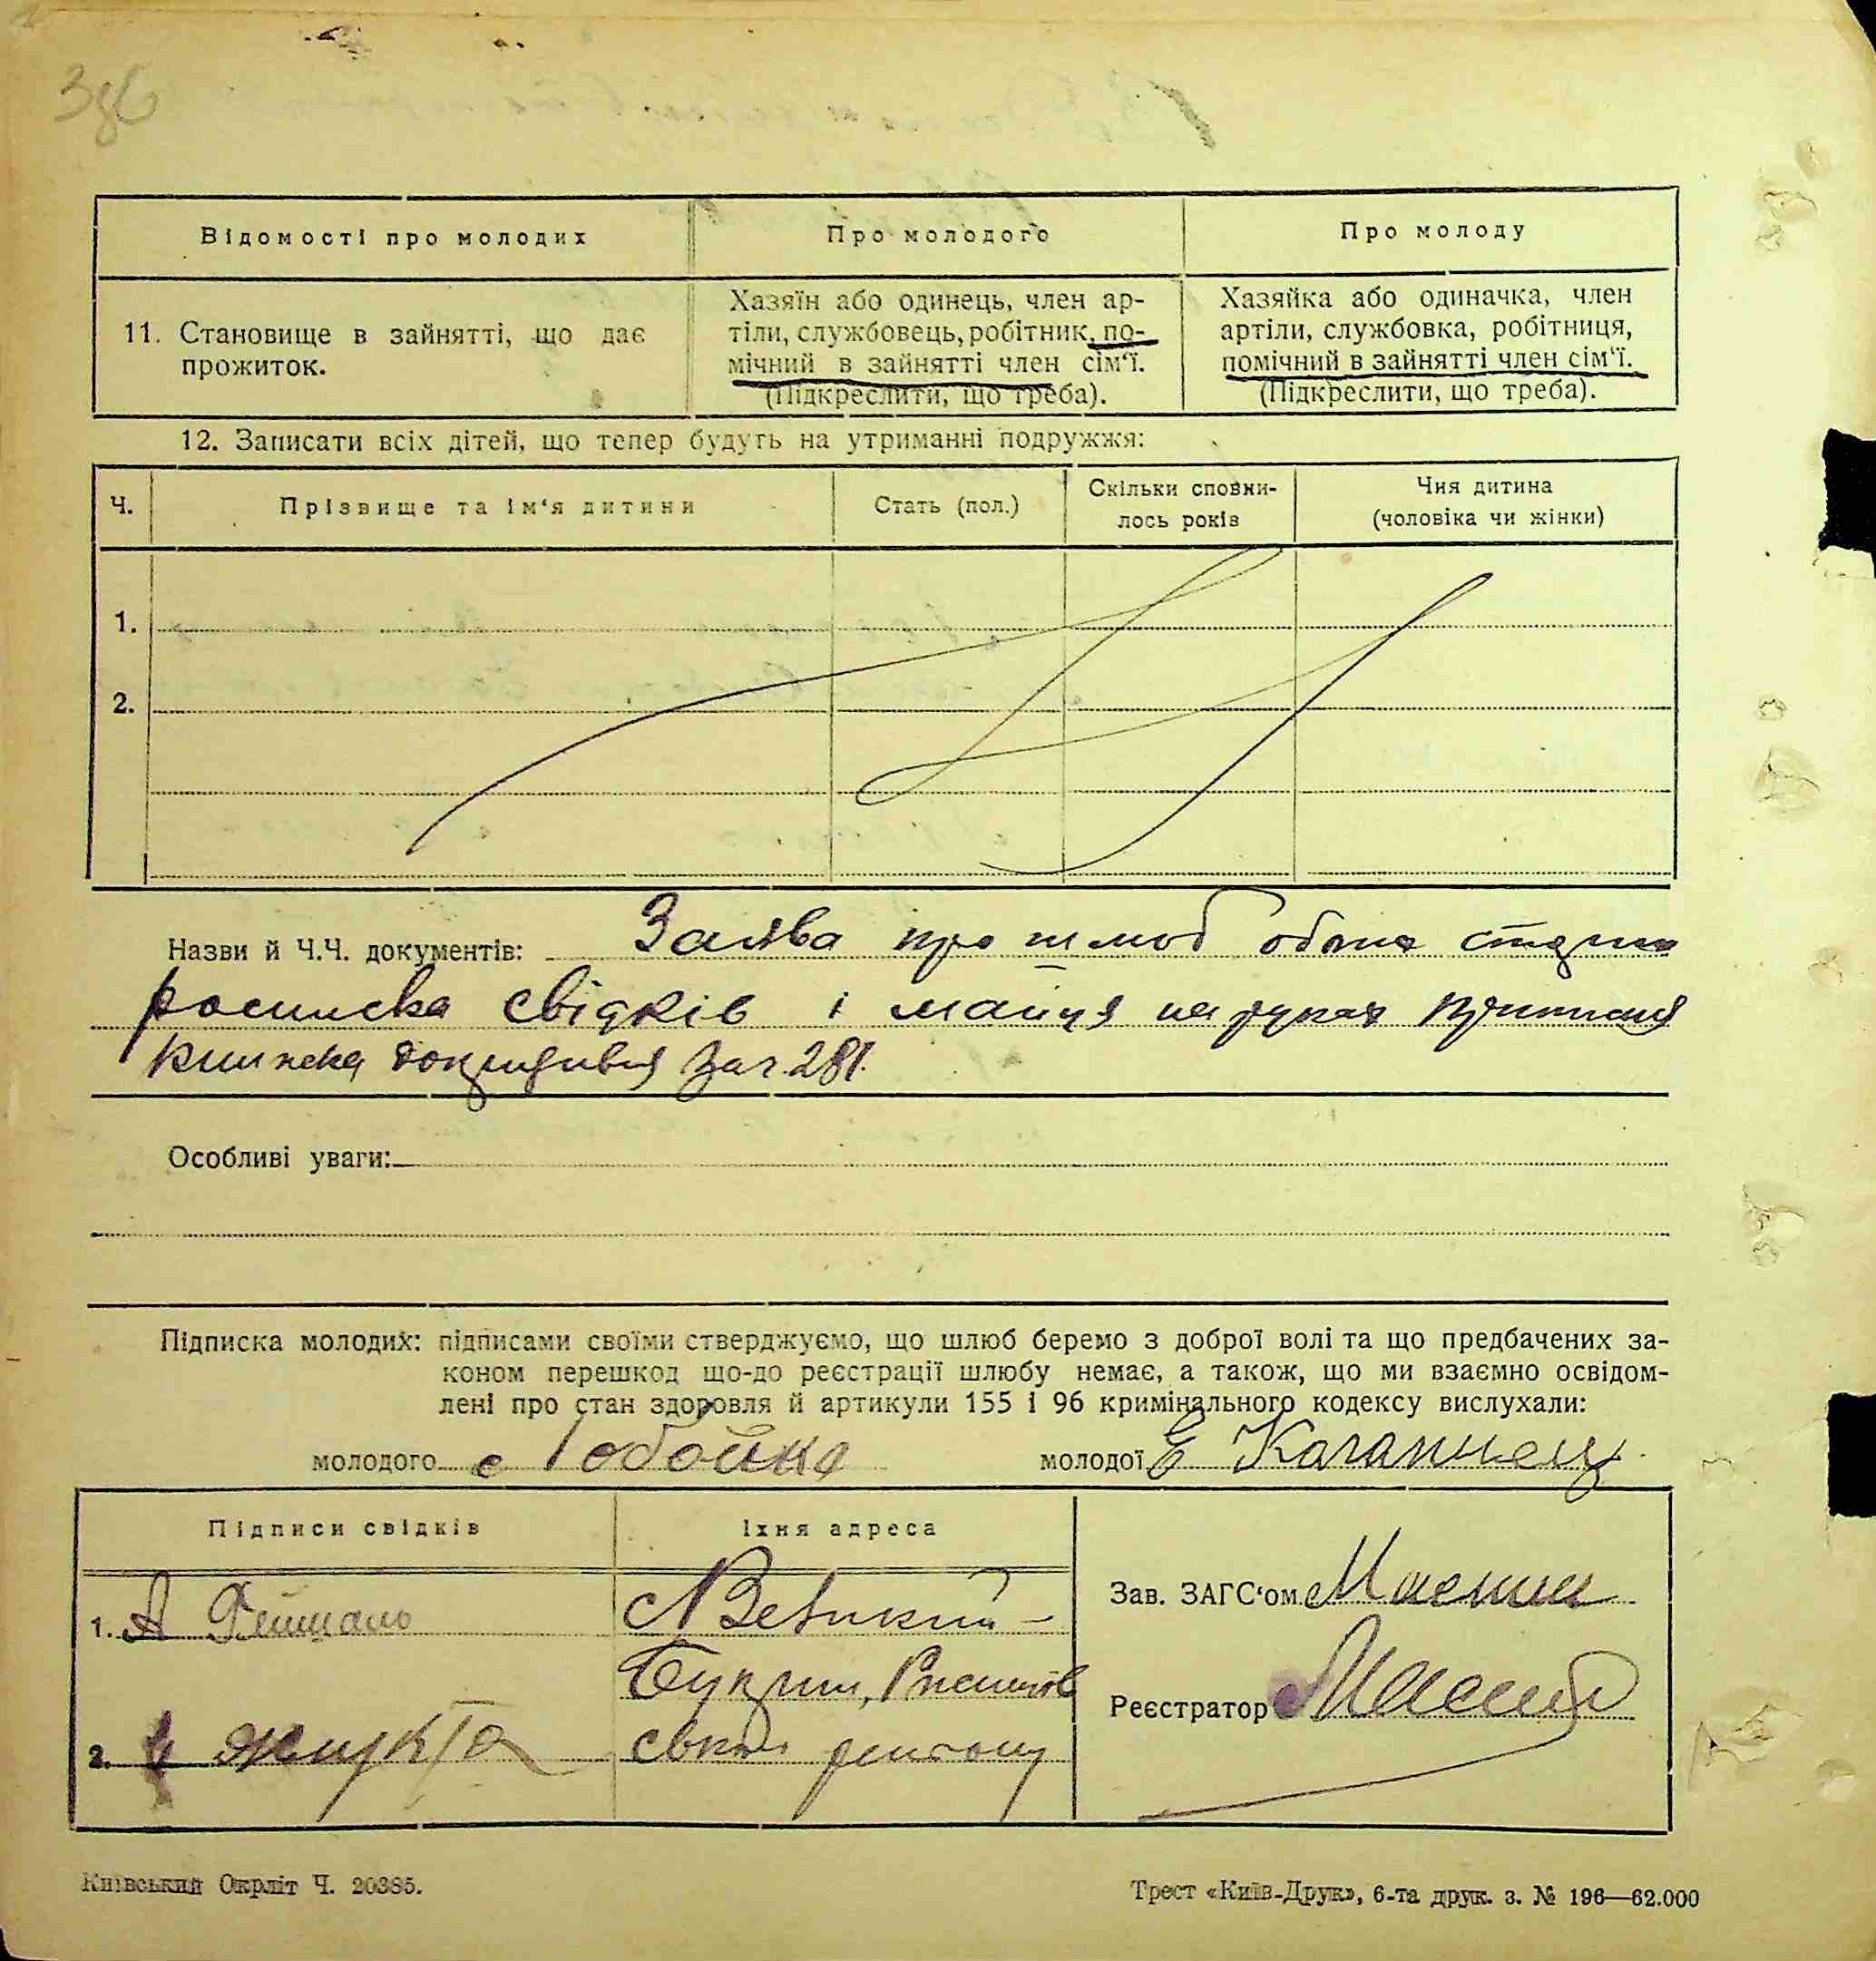 Відомості про молодих
Про молодого
Про молоду
11. Становище в зайнятті, що дає
прожиток.
Хазяїн або одинець, член ар-
тіли, службовець, робітник, по-
мічний в зайнятті член сім'ї.
(Підкреслити, що треба).
Хазяйка або одиначка, член
артіли, службовка, робітниця,
помічний в зайнятті член сім'ї.
(Підкреслити, що треба).
12. Записати всіх дітей, що тепер будуть на утриманні подружжя:
Ч.
Прізвище та ім'я дитини
Стать (пол.)
Скільки сповни-
лось років
Чия дитина
(чоловіка чи жінки)
1.
2.
Назви й Ч.Ч. документів: Заява про шлюб
росписка свідків і на руках
книжка за ч. 281.
Особливі уваги:
Підписка молодих: підписами своїми стверджуємо, що шлюб беремо з доброї волі та що предбачених за-
коном перешкод що-до реєстрації шлюбу немає, а також, що ми взаємно освідом-
лені про стан здоровля й артикули 155 і 96 кримінального кодексу вислухали:
молодого
молодої Є
Підписи свідків
Їхня адреса
1. А
с Великий
Букрин,
2.
району
Зав. ЗАГС'ом
Реєстратор
Київський Окрліт Ч. 20385.
Трест «Київ-Друк», 6-та друк. з. № 196—62.000